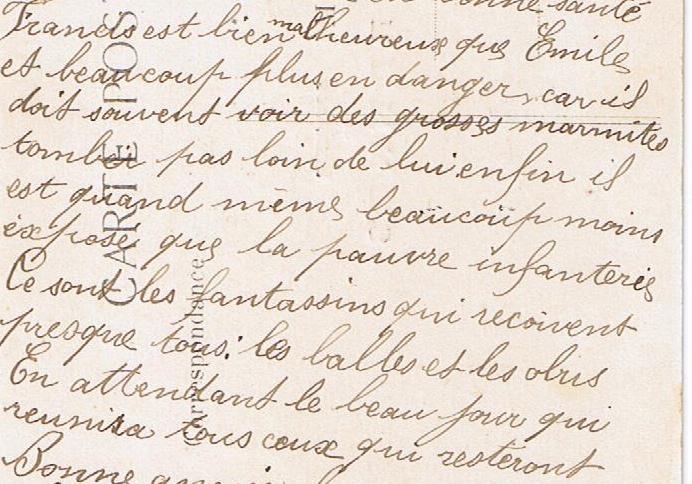 bonne santé
Francis est bien malheureux que Emile
et beaucoup plus en danger, car il
doit souvent voir des grosses marmites
tomber pas loin de lui enfin il
est quand même beaucoup moins
exposé que la pauvre infanterie
Ce sont les fantassins qui recoivent
presque tous: les balles et les obus
En attendant le beau jour qui
reunira tous ceux qui resteront
Bonne
CARTE POS
Correspondance